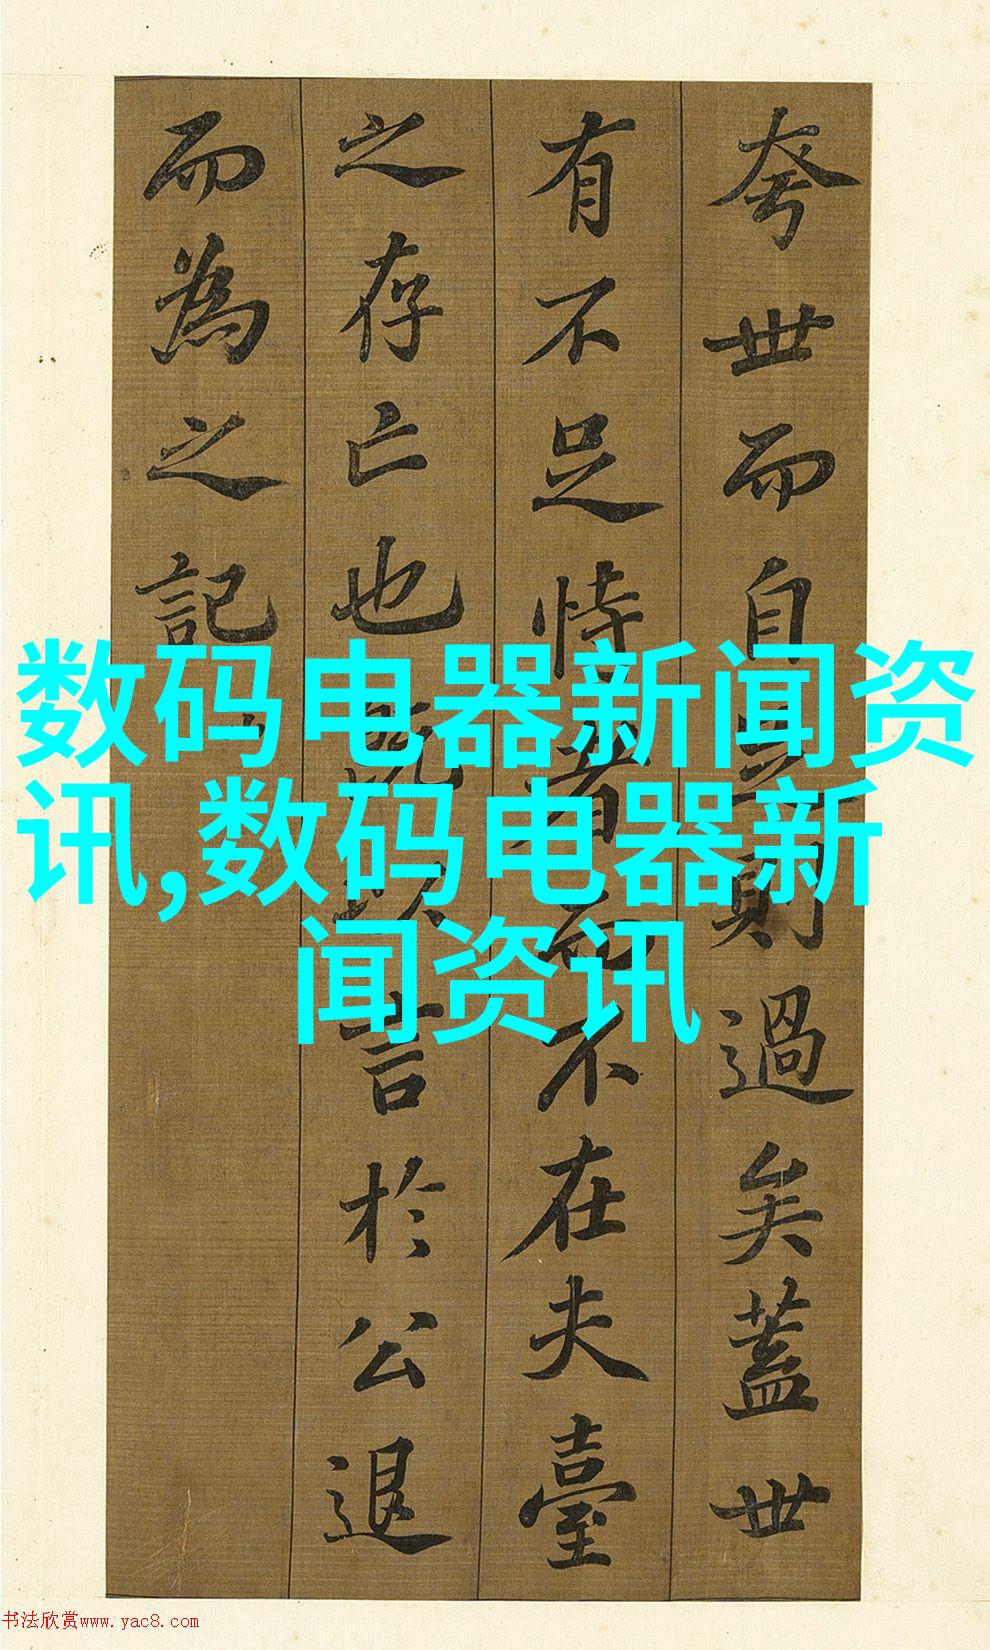 夸世而自則過矣蓋世
有不足恃者而不在夫臺
之存亡也既以言於公退
而為之記
数码电器新闻资
讯,数码电器新
闻资讯
书法欣赏www.yac8.com